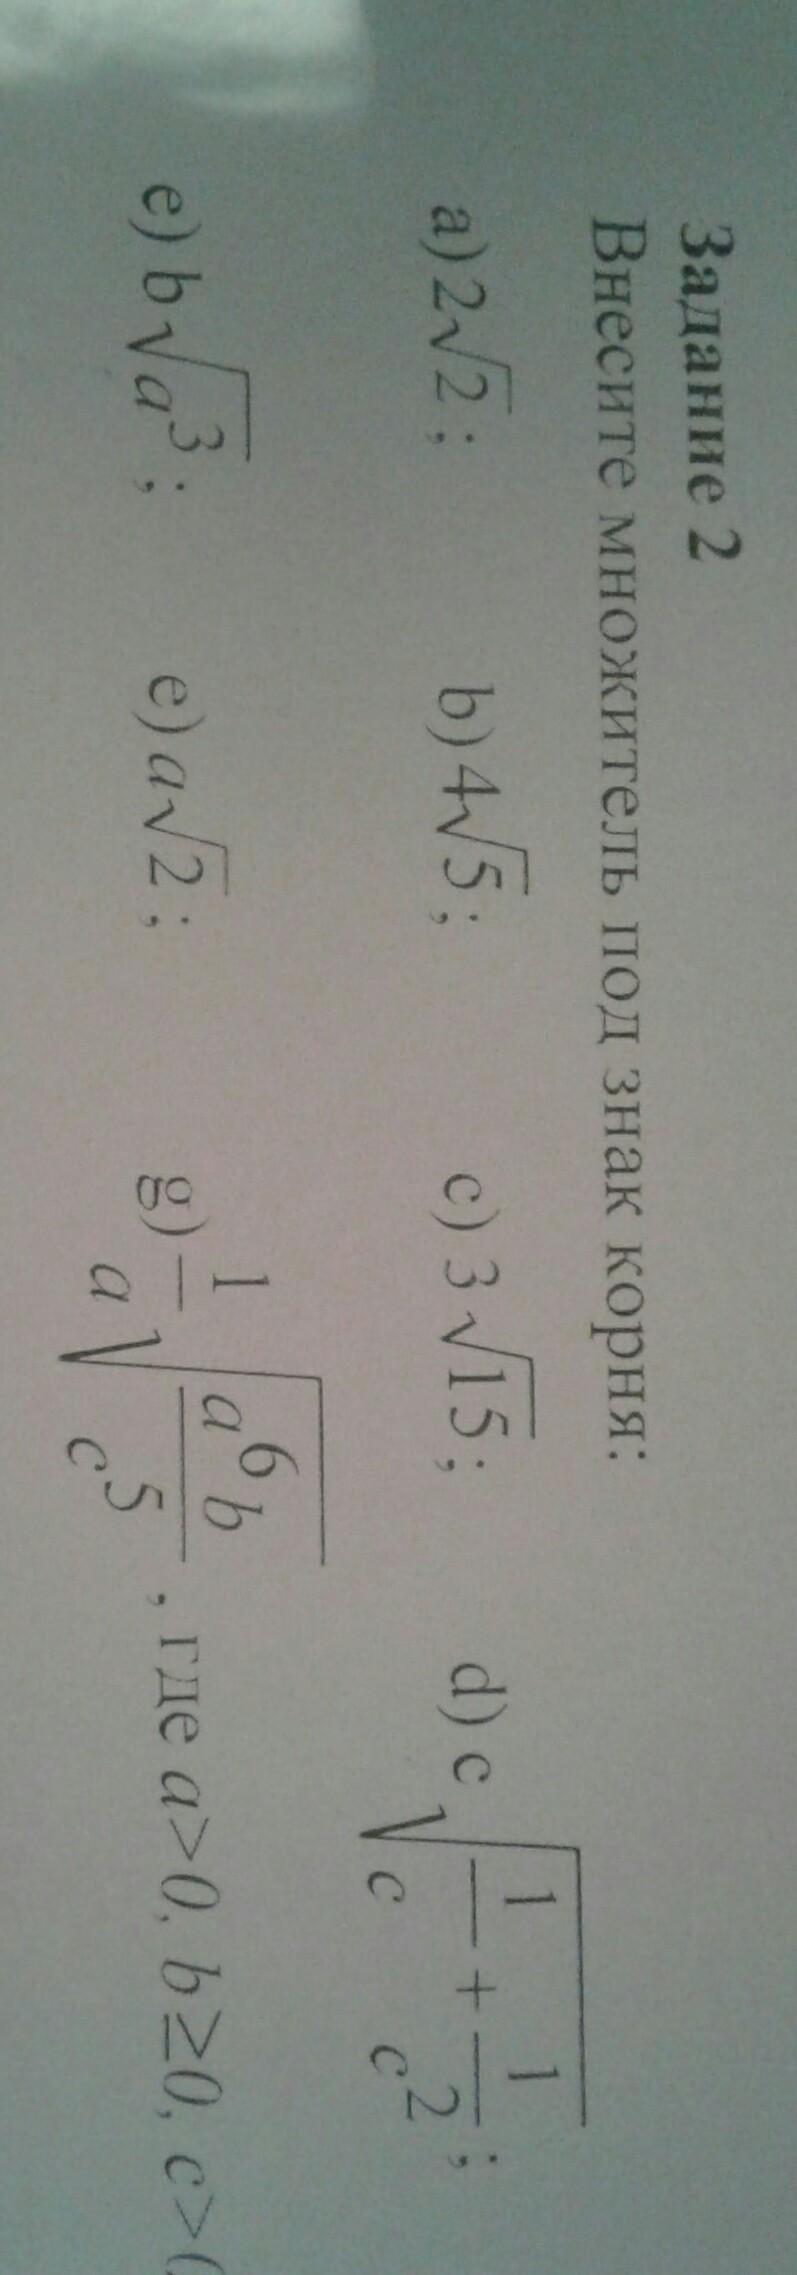 Задание 2
Внесите множитель под знак корня:
a) 2√2; b) 4√5; c) 3√15; d) c√(1/c + 1/c²);
e) b√(a³); e) a√2; g) 1/a √(a⁶b/c⁵), где a>0, b≥0, c>0